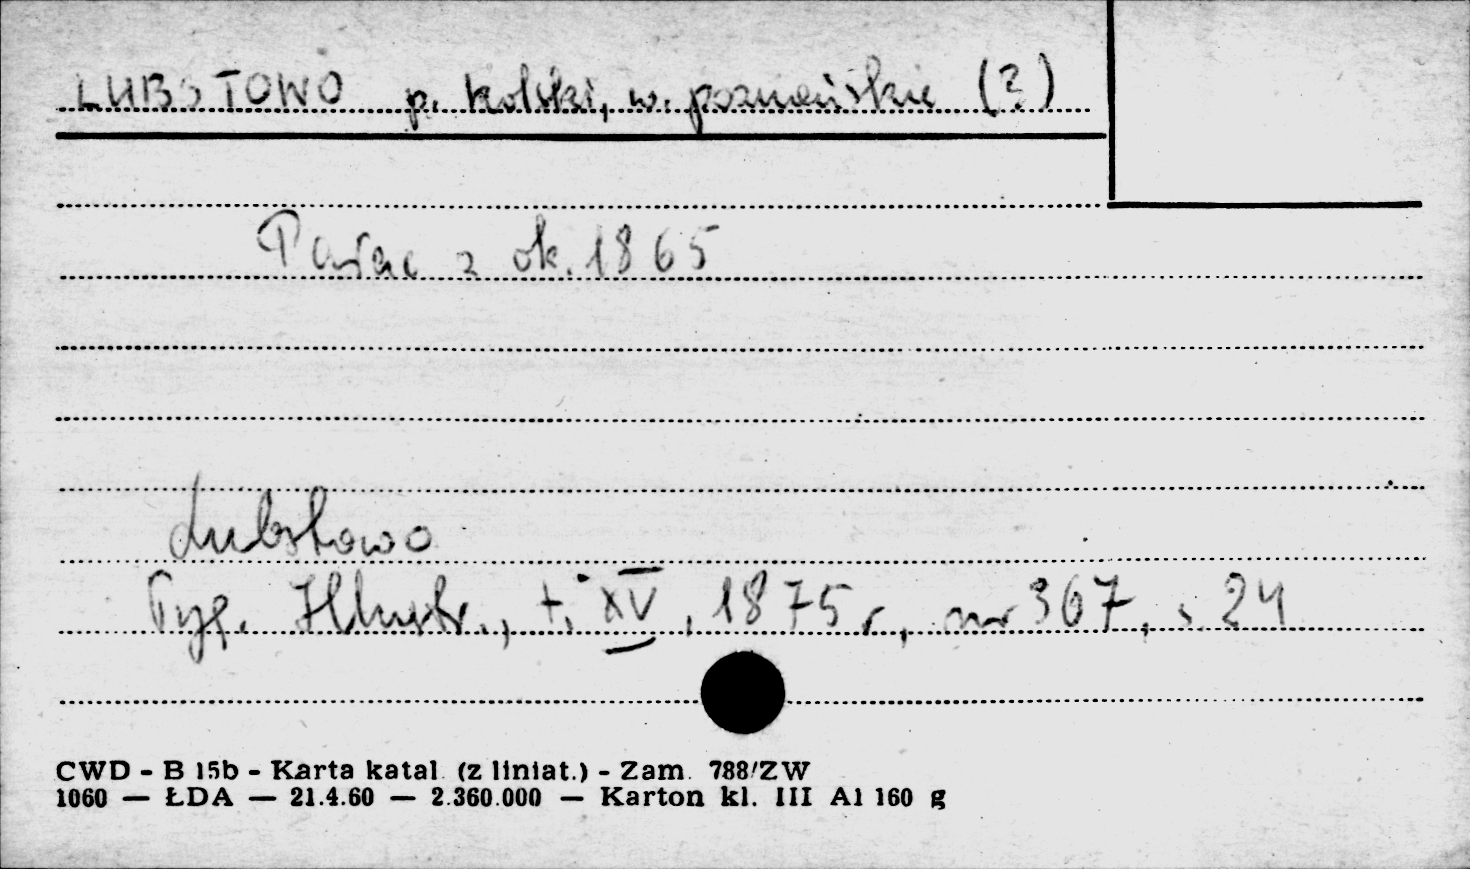 LUBSTOWO p. kolski, w. poznańskie (?)
Pałac z ok. 1865
Lubstowo
Tyg. Illustr., t. XV, 1875 r, nr 367, s. 24
CWD - B 15b - Karta katal. (z liniat.) - Zam. 788/ZW
1060 — ŁDA — 21.4.60 — 2.360.000 — Karton kl. III A1 160 g